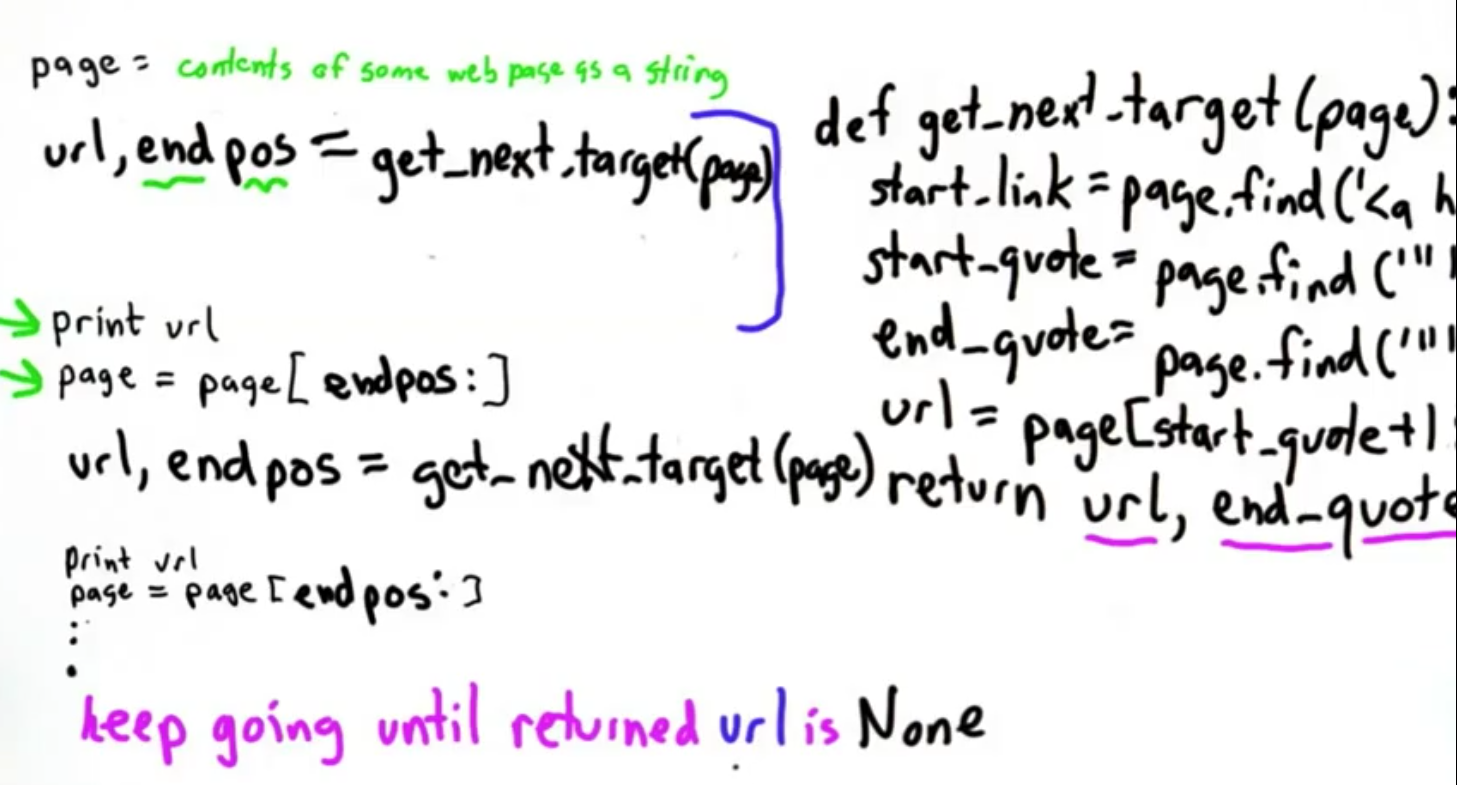 page = contents of some web page as a string
url, endpos = get_next_target(page)
print url
page = page[endpos:]
url, endpos = get_next_target(page)
print url
page = page[endpos:]
:
.
keep going until returned url is None
def get_next_target(page):
start_link = page.find('<a h
start_quote = page.find('"'
end_quote = page.find('"'
url = page[start_quote+1:
return url, end_quote